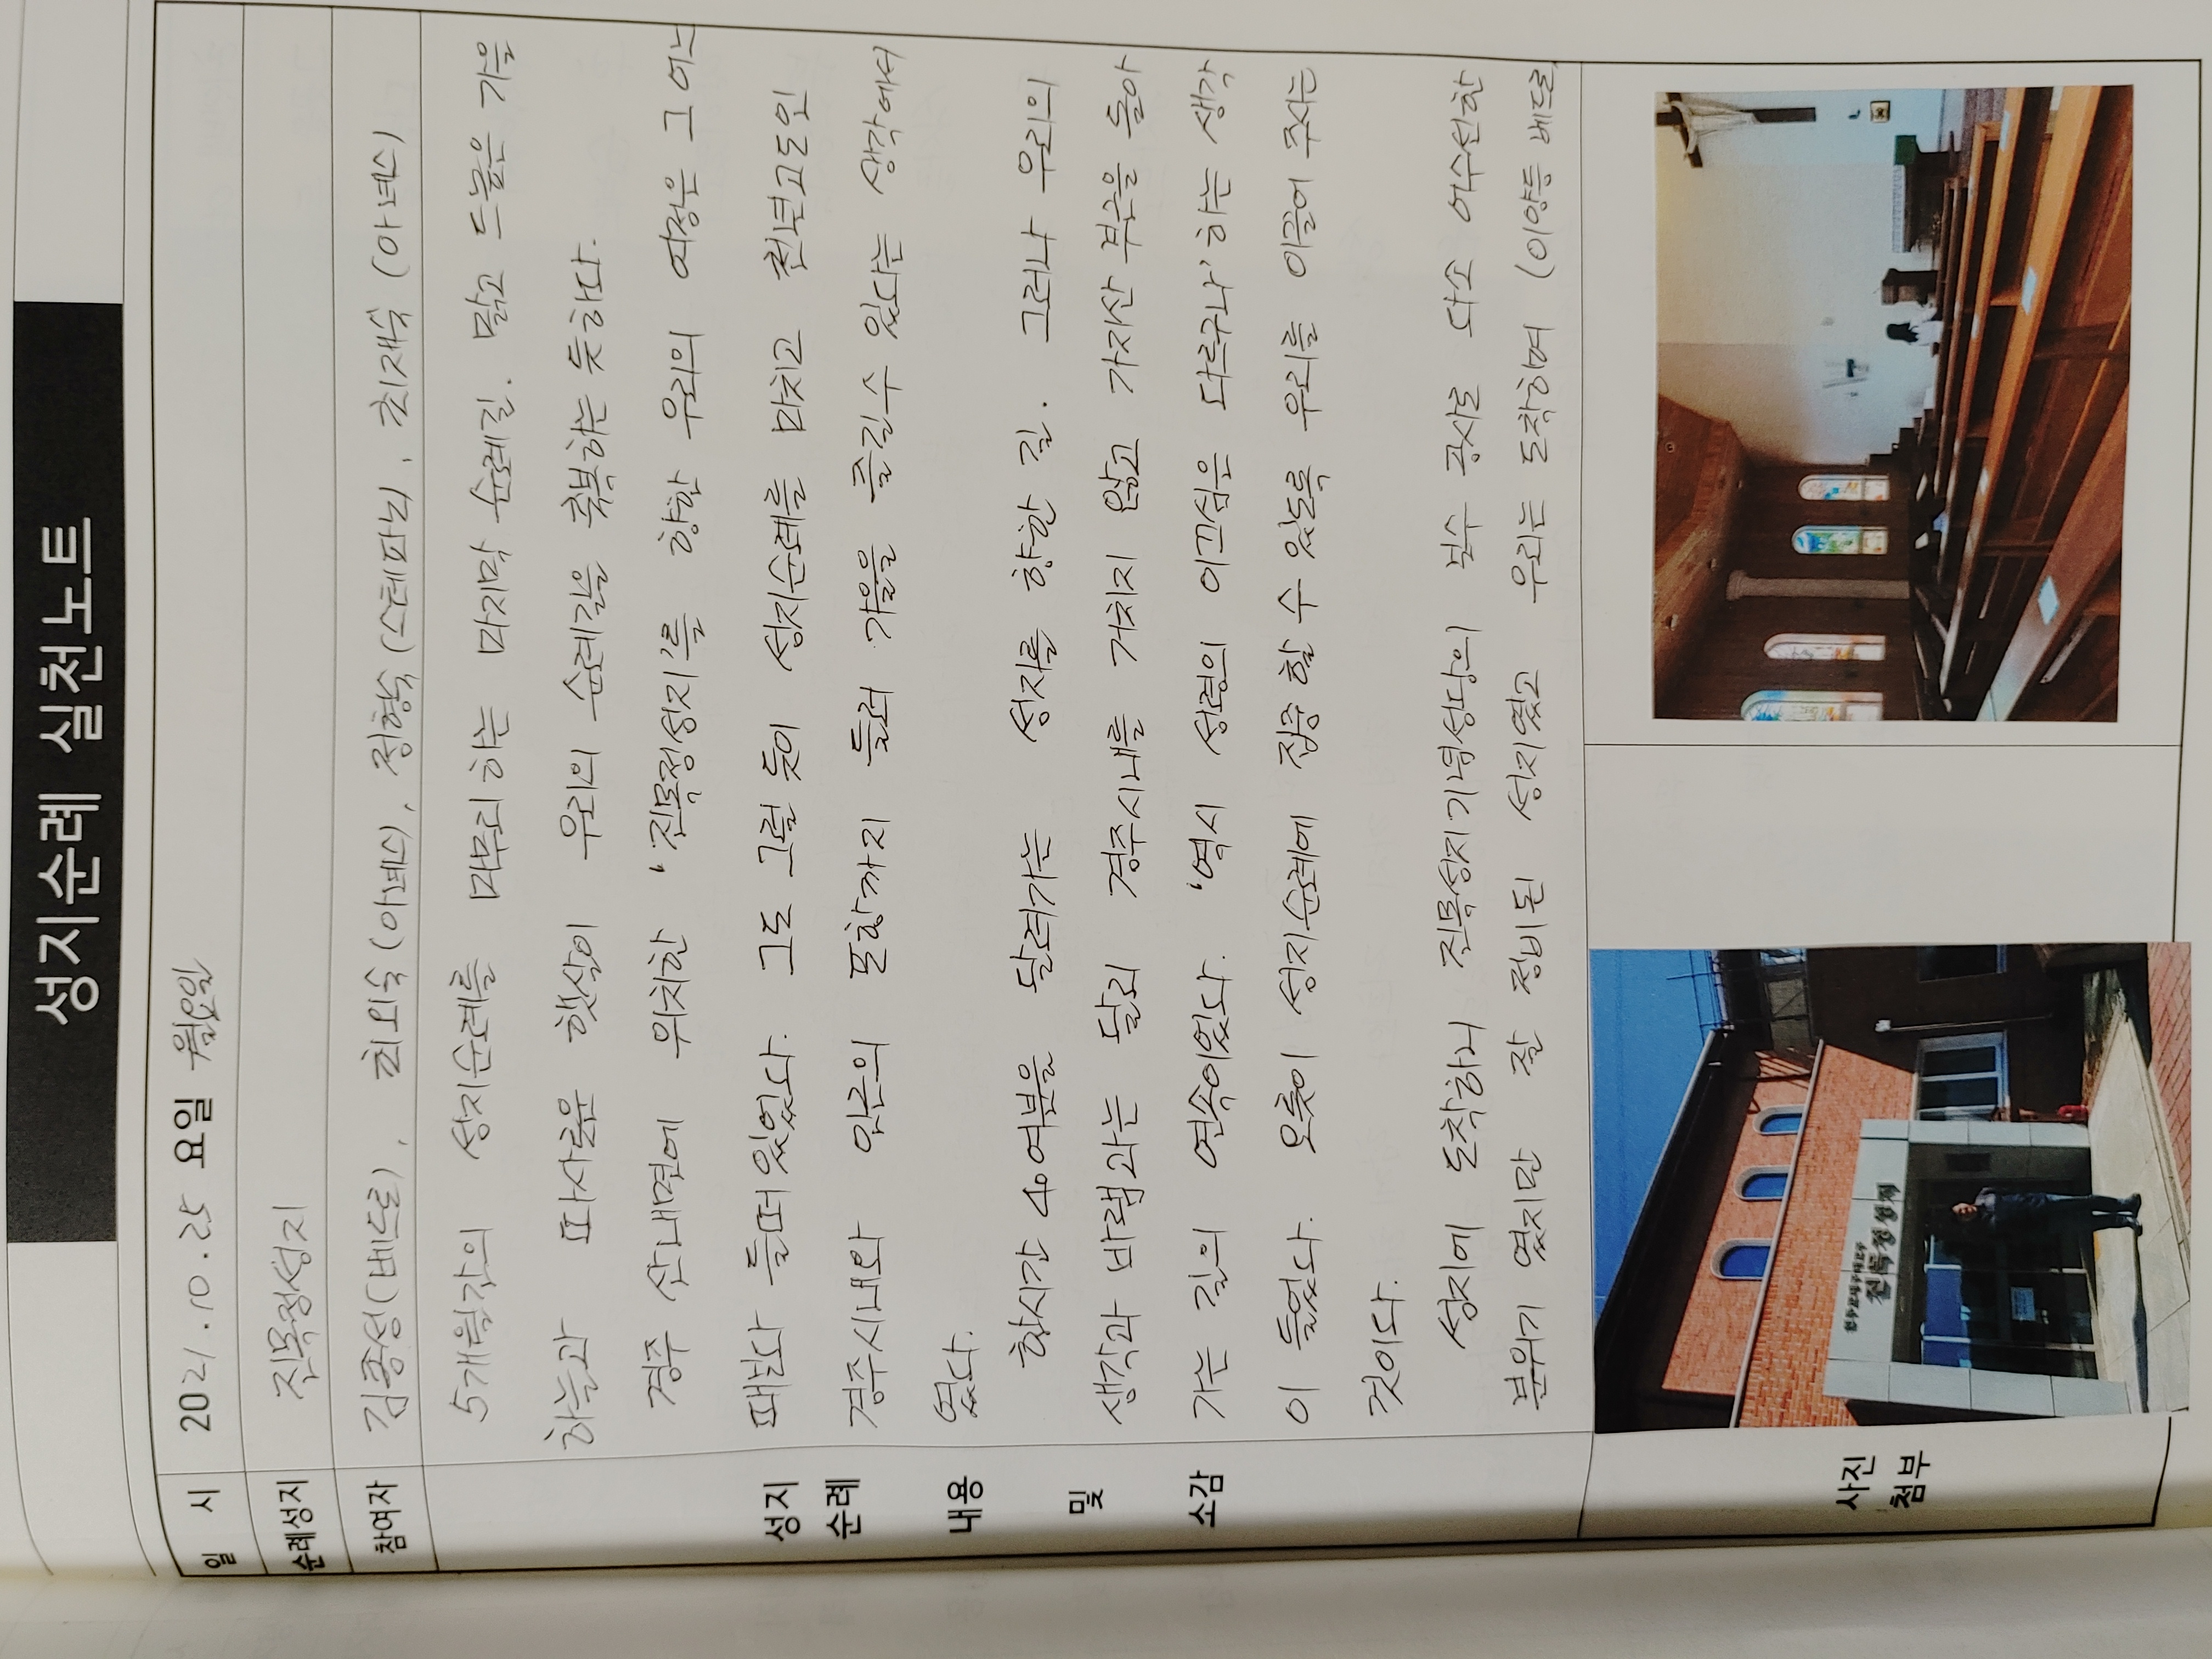 성지순례 실천노트
일 시 2021.10.25 요일 월요일
순례성지 진목정성지
참여자 김종성(베드로), 최외숙(아녜스), 정형숙(스테파니), 최재숙(아녜스)
성지 순례 내용 및 소감
5개월간의 성지순례를 마무리하는 마지막 순례길. 맑고 드높은 가을
하늘과 따사로운 햇살이 우리의 순례길을 축복하는 듯하다.
경주 산내면에 위치한 '진목정성지'를 향한 우리의 여정은 그 어느
때보다 들떠있었다. 그도 그럴 듯이 성지순례를 마치고 천년고도인
경주시내와 인근의 포항까지 들러 가을을 즐길수 있다는 생각에서
였다.
한시간 40여분을 달려가는 성지를 향한 길. 그러나 우리의
생각과 바램과는 달리 경주시내를 거치지 않고 가지산 부근을 돌아
가는 길의 연속이었다. '역시 성령의 이끄심은 다르구나' 하는 생각
이 들었다. 오롯이 성지순례에 집중 할 수 있도록 우리를 이끌어 주시는
것이다.
성지에 도착하니 진목성지기념성당의 보수 공사로 다소 어수선한
분위기 였지만 잘 정비된 성지였고 우리는 도착하며 (이양등 베드로,
사진 첨부
진목정성지